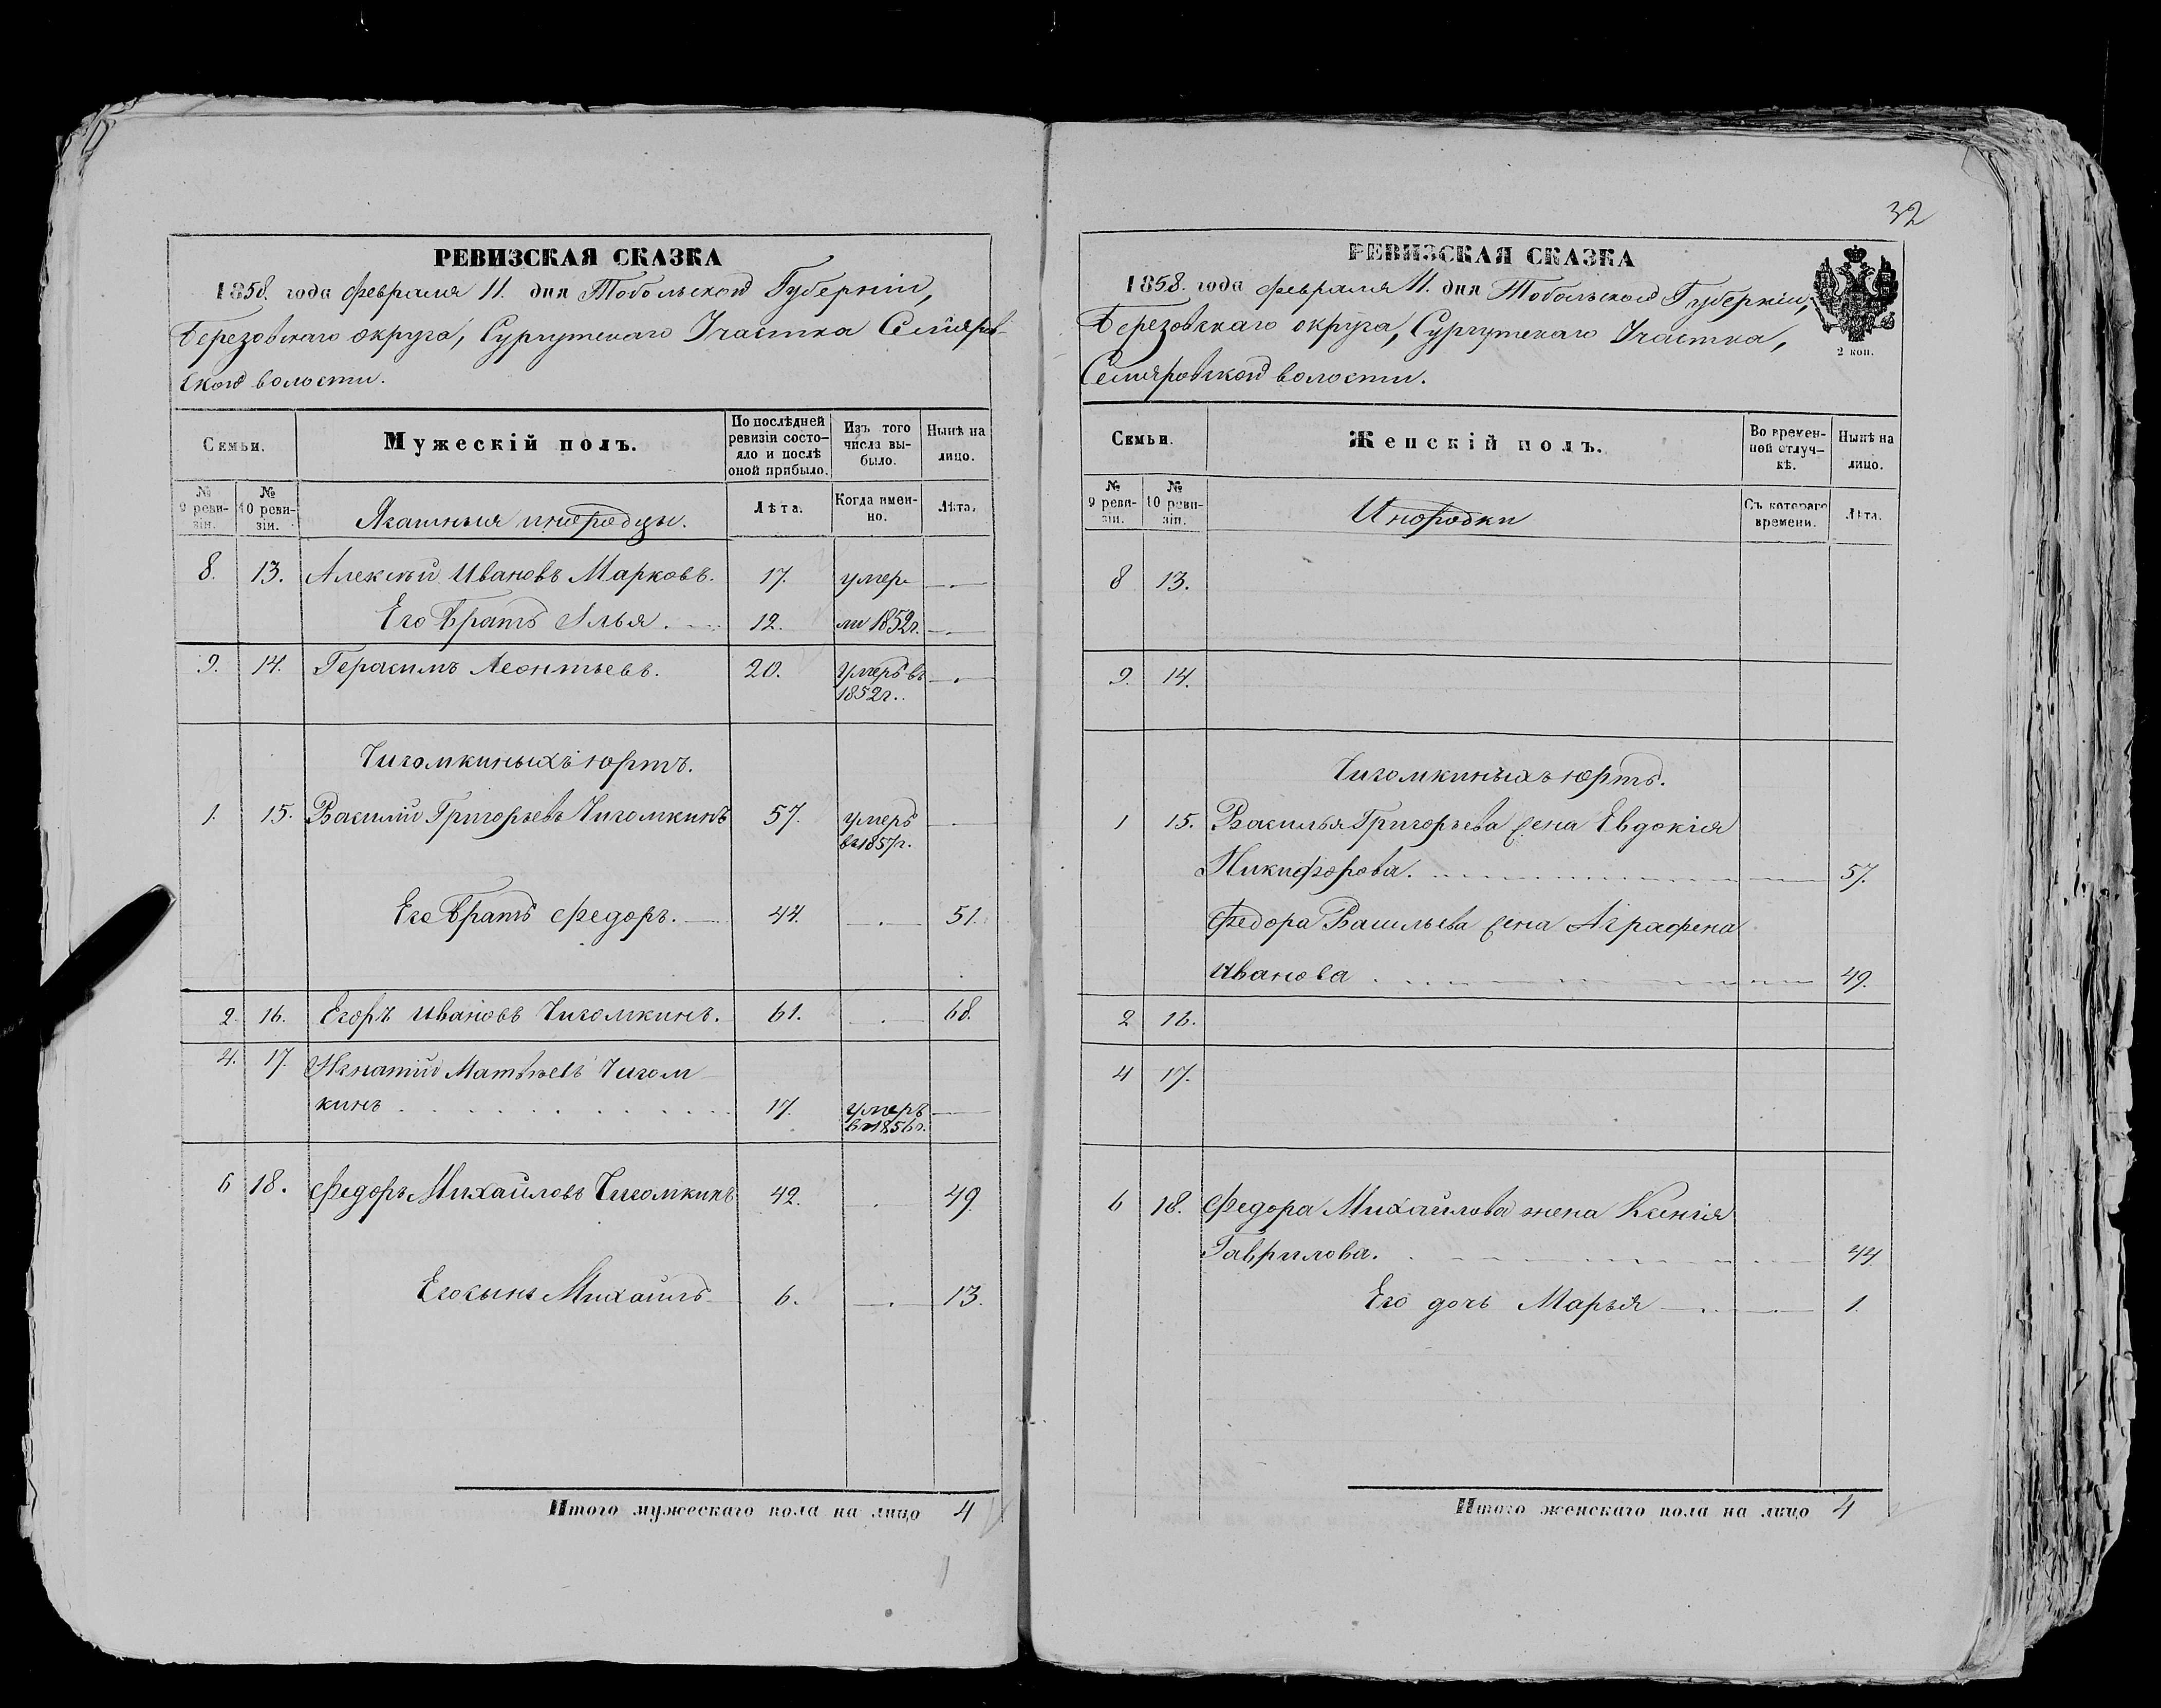 РЕВИЗСКАЯ СКАЗКА
1858. года Февраля 11. дня Тобольской Губерніи,
Березовскаго округа, Сургутскаго Участка Селіяров-
ской волости.
Семьи.
Мужескій полъ.
По послѣдней ревизіи состо-яло и послѣ оной прибыло.
Изъ того числа вы-было.
Нынѣ на лицо.
№ 9 реви-зіи.
№ 10 реви-зіи.
Ясашныя инородцы.
Лѣта.
Когда имен-но.
Лѣта.
8. 13. Алексѣй Ивановъ Марковъ. 17. умер-
Его братъ Илья. 12. ли 1852г.
9. 14. Герасимъ Леонтьевъ. 20. Умеръ въ
1852г.
Чигомкиныхъ юртъ.
1. 15. Василій Григорьевъ Чигомкинъ 57. умеръ
въ 1857г.
Его братъ Федоръ. 44. 51.
2. 16. Егоръ Ивановъ Чигомкинъ. 61. 68.
4. 17. Игнатій Матвѣевъ Чигом-
кинъ 17. умеръ
въ 1856г.
6 18. Федоръ Михайловъ Чигомкинъ 42. 49.
Его сынъ Михаилъ 6. 13.
Итого мужескаго пола на лицо 4
32
РЕВИЗСКАЯ СКАЗКА
1858. года Февраля 11. дня Тобольской Губерніи,
Березовскаго округа, Сургутскаго Участка,
Селіяровской волости.
2 коп.
Семьи.
Женскій полъ.
Во времен-ной отлуч-кѣ.
Нынѣ на лицо.
№ 9 реви-зіи.
№ 10 реви-зіи.
Инородки
Съ котораго времени.
Лѣта.
8 13.
9. 14.
Чигомкиныхъ юртъ.
1 15. Василья Григорьева жена Евдокія
Никифорова. 57.
Федора Васильева жена Аграфена
Иванова 49.
2 16.
4 17.
6 18. Федора Михайлова жена Ксенія
Гаврилова. 44.
Его дочь Марья 1.
Итого женскаго пола на лицо 4